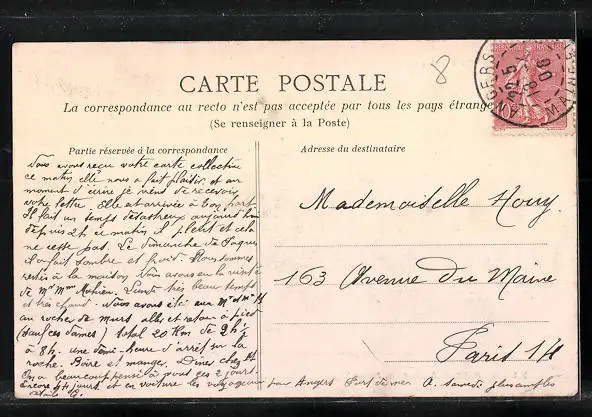 CARTE POSTALE
La correspondance au recto n'est pas acceptée par tous les pays étrang
(Se renseigner à la Poste)
8
ANGERS
Partie réservée à la correspondance
Adresse du destinataire
Nous avons reçu votre carte collective
ce matin elle nous a fait plaisir et au
moment d'écrire je viens de recevoir
votre lettre. Elle est arrivée à bon port
Il fait un temps désastreux aujourd'hui
depuis 2h ce matin il pleut et cela
ne cesse pas. Le dimanche de Pâques
il a fait sombre et froid. Nous sommes
restés à la maison Nous avons eu la visite
de Mr Mme Mathieu. Lundi très beau temps
et très chaud. Nous avons été avec Mr et Me H
au rocher de murs aller et retour à pied
(sauf ces dames) total 20 Km de 2h ½
à 8h. une demi-heure d'arrêt sur la
roche. Boire et manger. Diner chez H.
On a beaucoup pensé à vous ces 2 jours.
Encore 44 jours et en voiture les voyageurs pour Angers
A. samedi
Mademoiselle Houy
163 Avenue du Maine
Paris 14